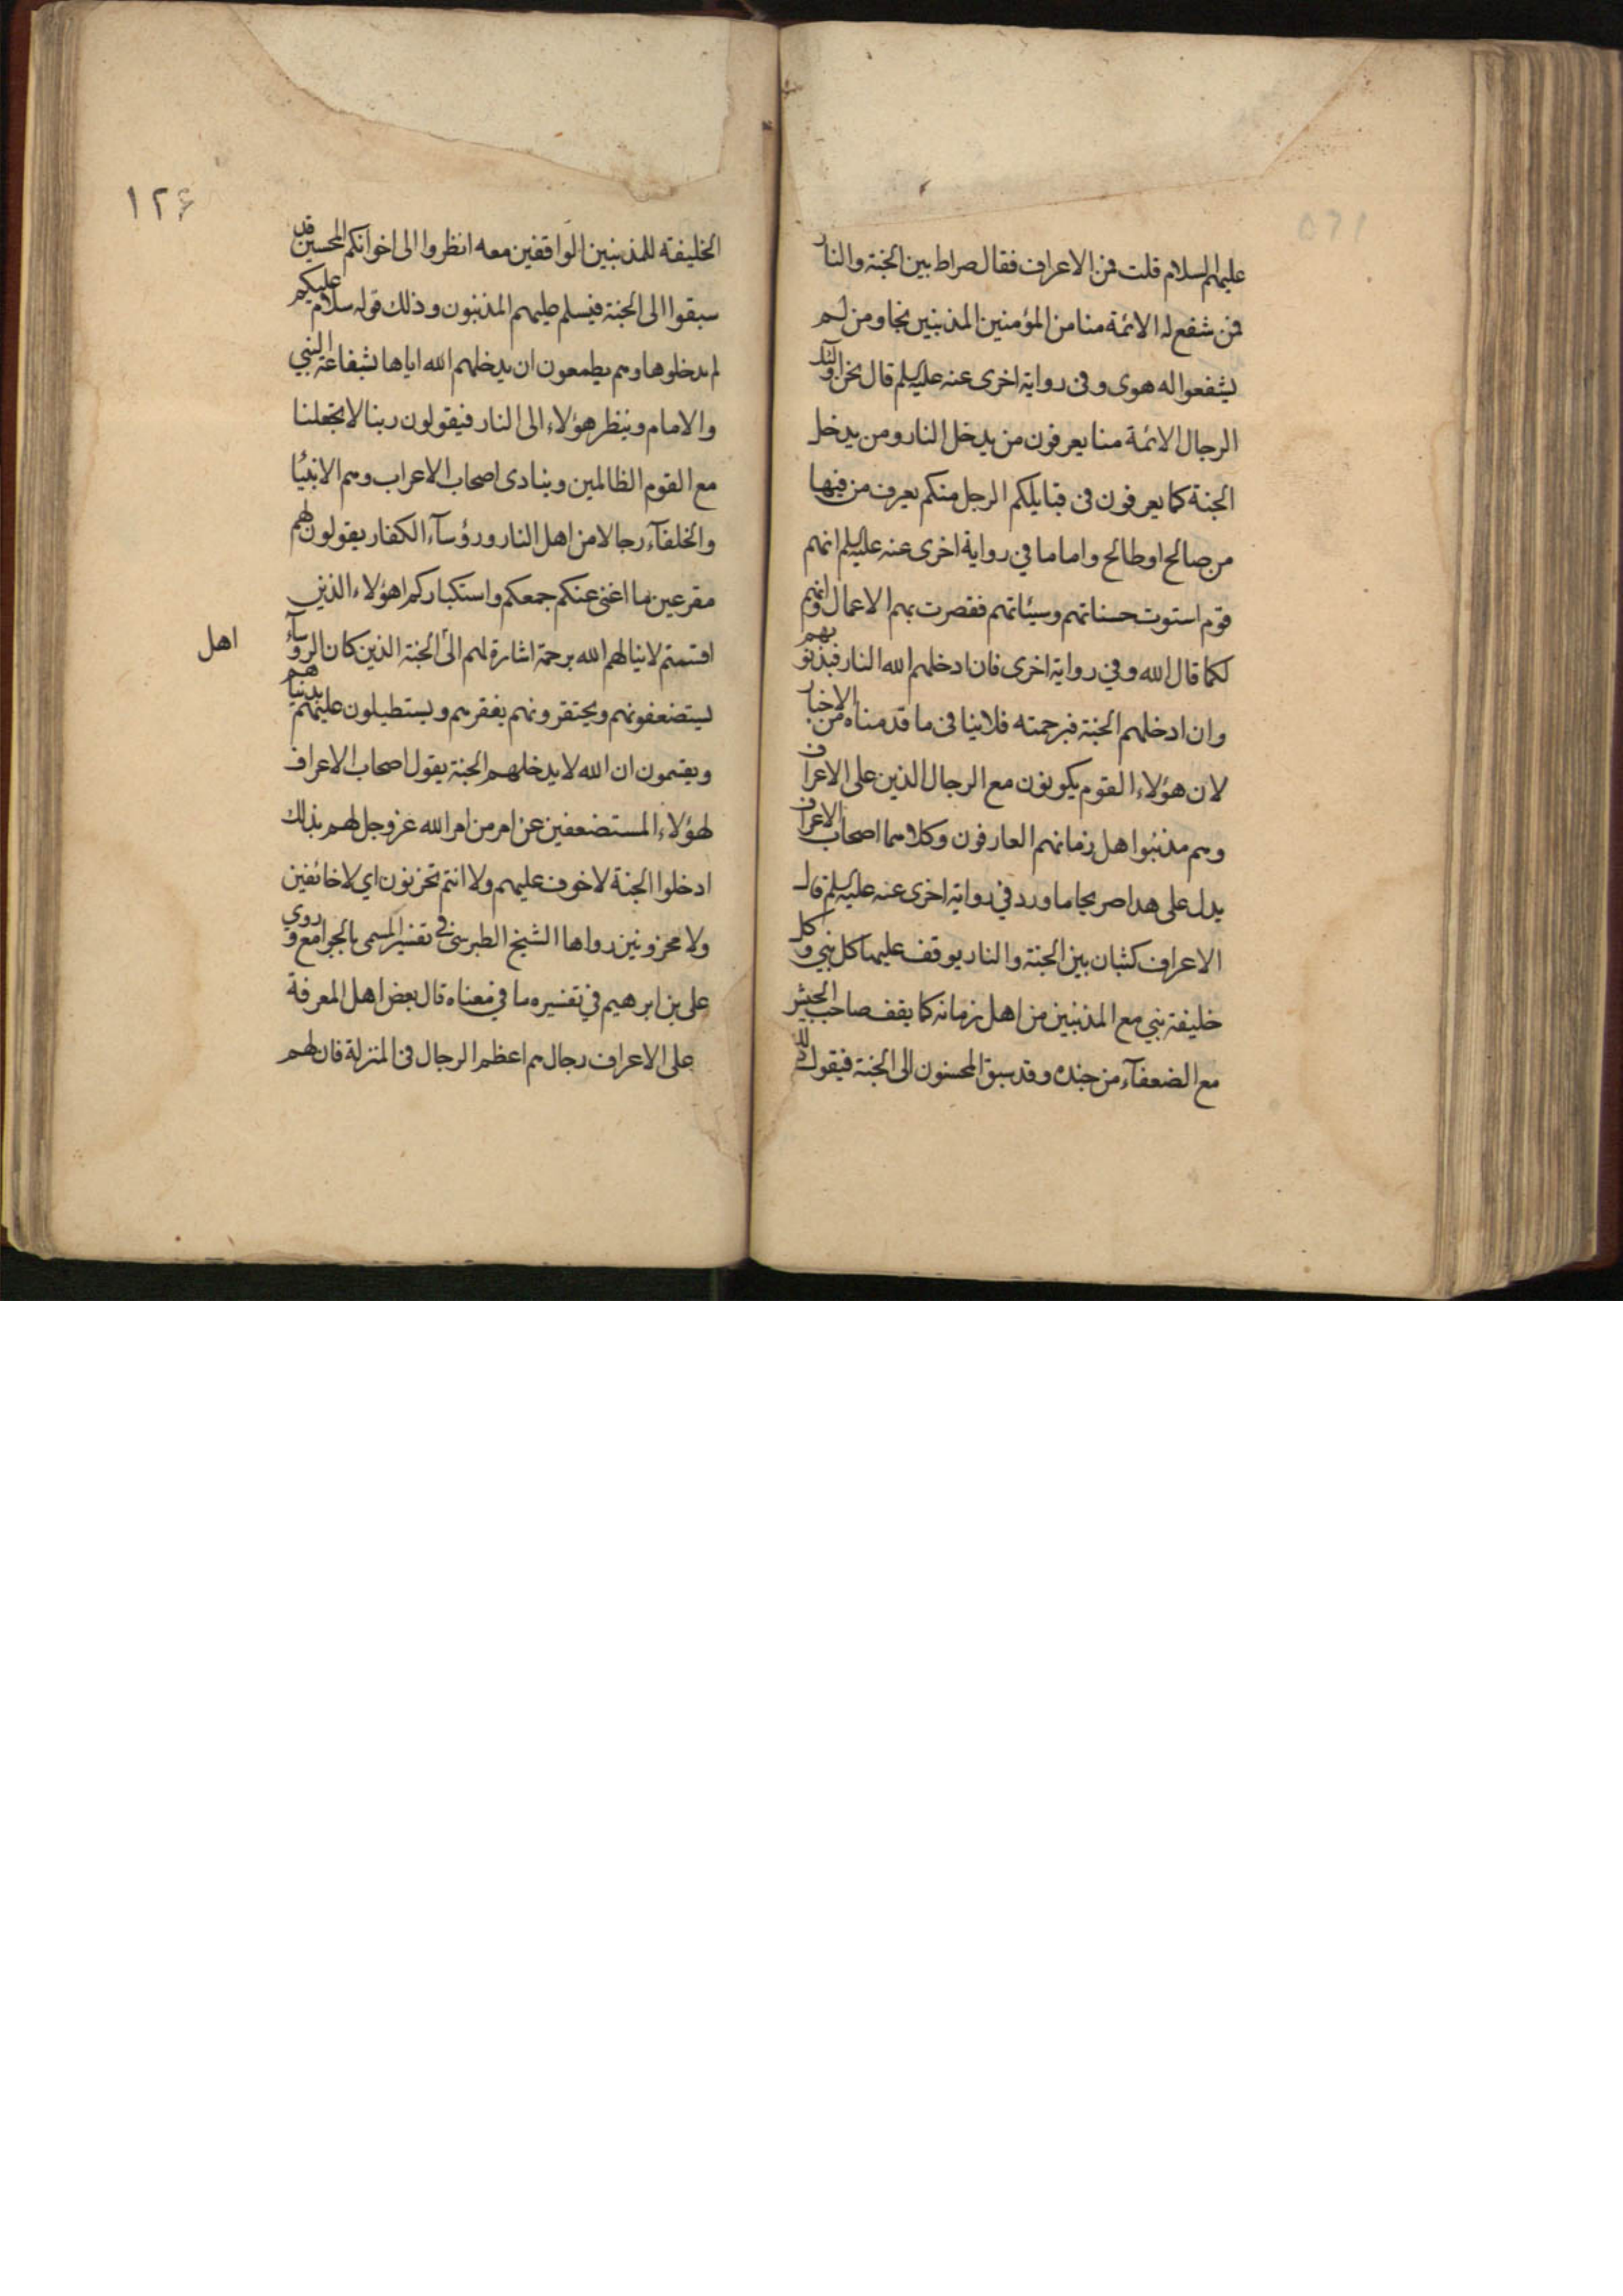 عليهم السلام قلت فمن الاعراف فقال صراط بين الجنة والنار
فمن شفع له الائمة منا من المؤمنين المذنبين نجا ومن لم
يشفعوا له هوى وفى رواية اخرى عنه عليه السلم قال نحن اولئك
الرجال الائمة منا يعرفون من يدخل النار ومن يدخل
الجنة كما يعرفون فى قبايلكم الرجل منكم يعرف من فيها
من صالح او طالح واما ما في رواية اخرى عنه عليه السلم انهم
قوم استوت حسناتهم وسيئاتهم فقصرت بهم الاعمال وانهم
لكما قال الله وفي رواية اخرى فان ادخلهم الله النار فبذنوبهم
وان ادخلهم الجنة فبرحمته فلا ينافى ما قدمناه من الاخبار
لان هؤلاء القوم يكونون مع الرجال الذين على الاعراف
وهم مذنبوا اهل زمانهم العارفون وكلاهما اصحاب الاعراف
يدل على هذا صريحا ما ورد في رواية اخرى عنه عليه السلم قال
الاعراف كثبان بين الجنة والنار يوقف عليها كل نبي وكل
خليفة نبي مع المذنبين من اهل زمانه كما يقف صاحب الجيش
مع الضعفآء من جنده وقد سبق المحسنون الى الجنة فيقول ذلك
١٢۶
الخليفة للمذنبين الواقفين معه انظروا الى اخوانكم المحسنين قد
سبقوا الى الجنة فيسلم عليهم المذنبون وذلك قوله سلام عليكم
لم يدخلوها وهم يطمعون ان يدخلهم الله اياها بشفاعة النبي
والامام وينظر هؤلاء الى النار فيقولون ربنا لا تجعلنا
مع القوم الظالمين وينادى اصحاب الاعراب وهم الانبيا
والخلفآء رجالا من اهل النار ورؤسآء الكفار يقولون لهم
مقرعين ما اغنى عنكم جمعكم واستكباركم اهؤلاء الذين
اقسمتم لا ينالهم الله برحمة اشارة لهم الى الجنة الذين كان الرؤسآء
اهل
يستضعفونهم ويحتقرونهم بفقرهم ويستطيلون عليهم بدنياهم
ويقسمون ان الله لا يدخلهم الجنة يقول اصحاب الاعراف
لهؤلاء المستضعفين عن امر من امر الله عز وجل لهم بذلك
ادخلوا الجنة لا خوف عليهم ولا انتم تحزنون اي لا خائفين
ولا محزونين رواها الشيخ الطبرسى في تفسير المسمى بالجوامع وروي
على بن ابرهيم في تفسيره ما في معناه قال بعض اهل المعرفة
على الاعراف رجال هم اعظم الرجال فى المنزلة فان لهم